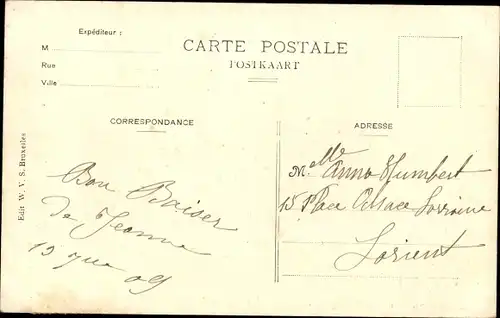 Expéditeur :
M
Rue
Ville
CARTE POSTALE
POSTKAART
CORRESPONDANCE
ADRESSE
Edit W. V. S. Bruxelles
Bon Baiser
de Jeanne
09
Melle Anna Humbert
15 Place Alsace Lorraine
Lorient